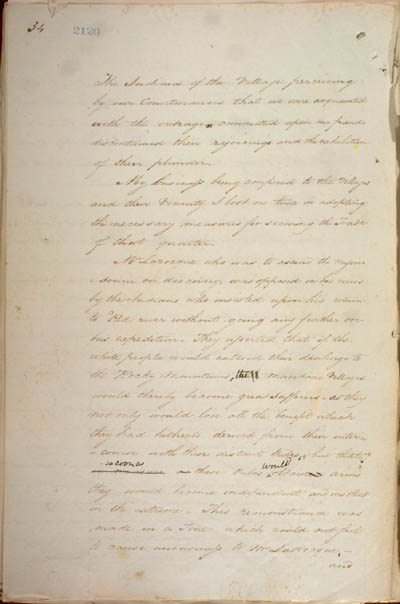 54
2120
The Indians of the Village perceiving
by our Countenances that we were acquainted
with the outrage committed upon our friends
discontinued their rejoicings and the exhibition
of their plunder.
My business being confined to the Villages
and their Vicinity I lost no time in adopting
the necessary measures for securing the Trade
of that quarter.
Mr Larocque who was to ascend the Missou-
-sourie on discovery, was opposed in his views
by the Indians who insisted upon his return
to Red river without going any further on
his expedition. They asserted that if the
white people would extend their dealings to
the Rocky Mountains, the Mandane Villages
would thereby become great sufferers - as they
not only would lose all the benefit which
they had hitherto derived from their inter-
-course with their distant tribes, but that
as soon as these tribes would obtain arms
they would become independent and insolent
in the extreme. This remonstrance was
made in a Tone which could not fail
to cause uneasiness to Mr Larocque, -
and